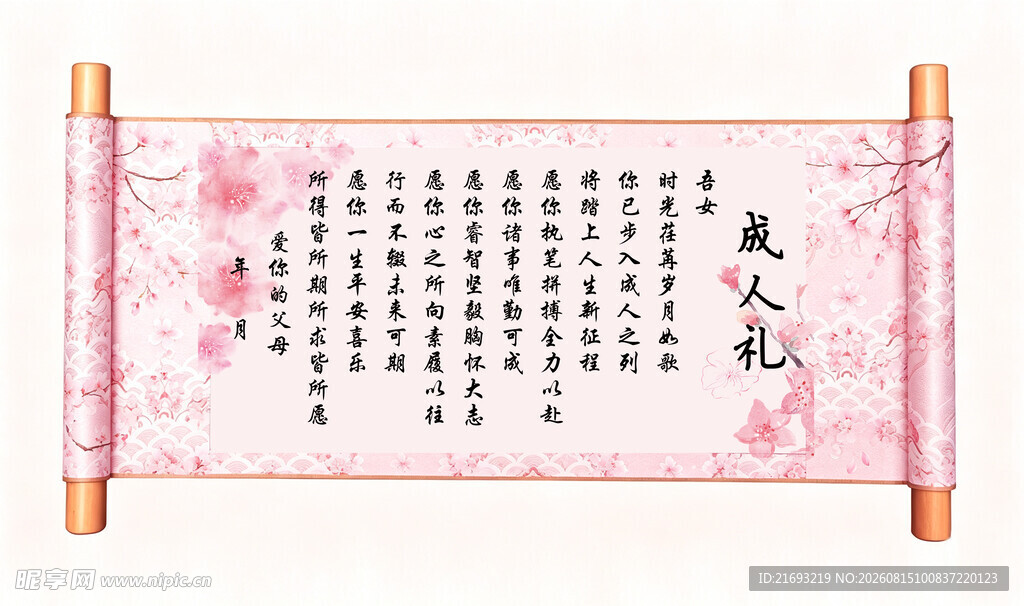 成人礼
吾女
时光荏苒岁月如歌
你已步入成人之列
将踏上人生新征程
愿你执笔拼搏全力以赴
愿你诸事唯勤可成
愿你睿智坚毅胸怀大志
愿你心之所向素履以往
行而不辍未来可期
愿你一生平安喜乐
所得皆所期所求皆所愿
爱你的父母
年 月
昵享网 www.nipic.cn
ID:21693219 NO:20260815100837220123